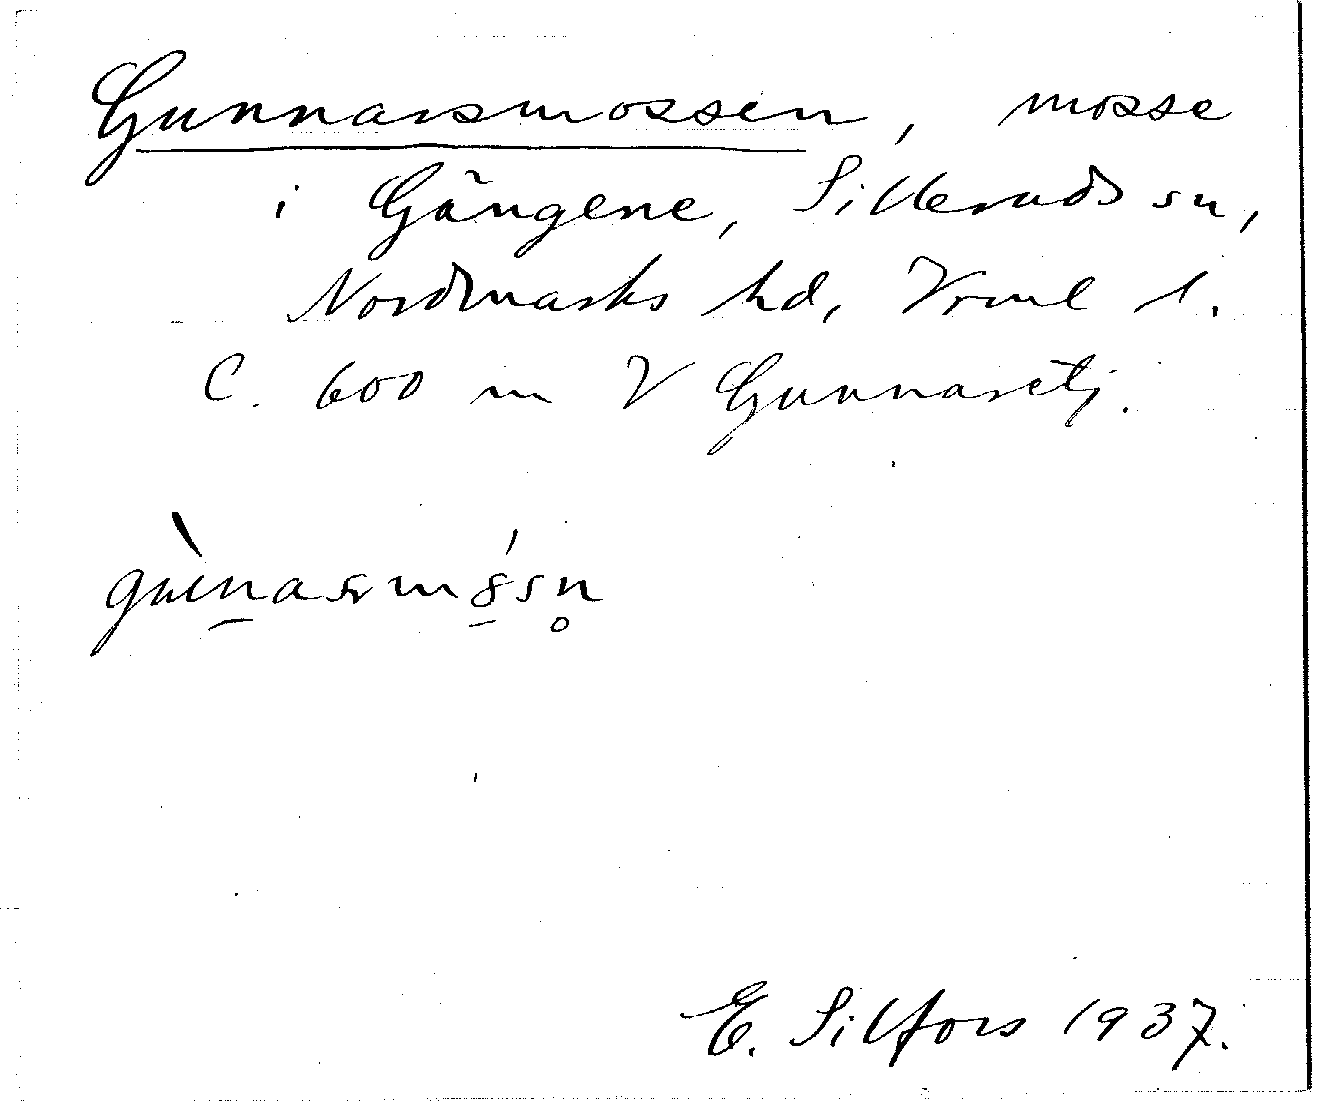 Gunnarsmossen, mosse
i Gängene, Silleruds sn,
Nordmarks hd, Vrml l.
C. 600 m V Gunnarstj.
E. Silfors 1937.